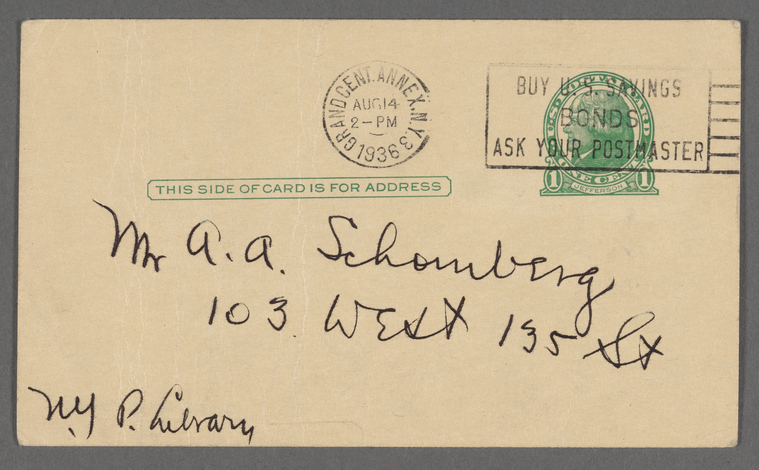 GRAND CENT. ANNEX, N.Y. 3
AUG 14
2-PM
1936
BUY U.S. SAVINGS
BONDS
ASK YOUR POSTMASTER
1 JEFFERSON 1
THIS SIDE OF CARD IS FOR ADDRESS
Mr A. A. Schomberg
103 West 135 St
N.Y P. Library